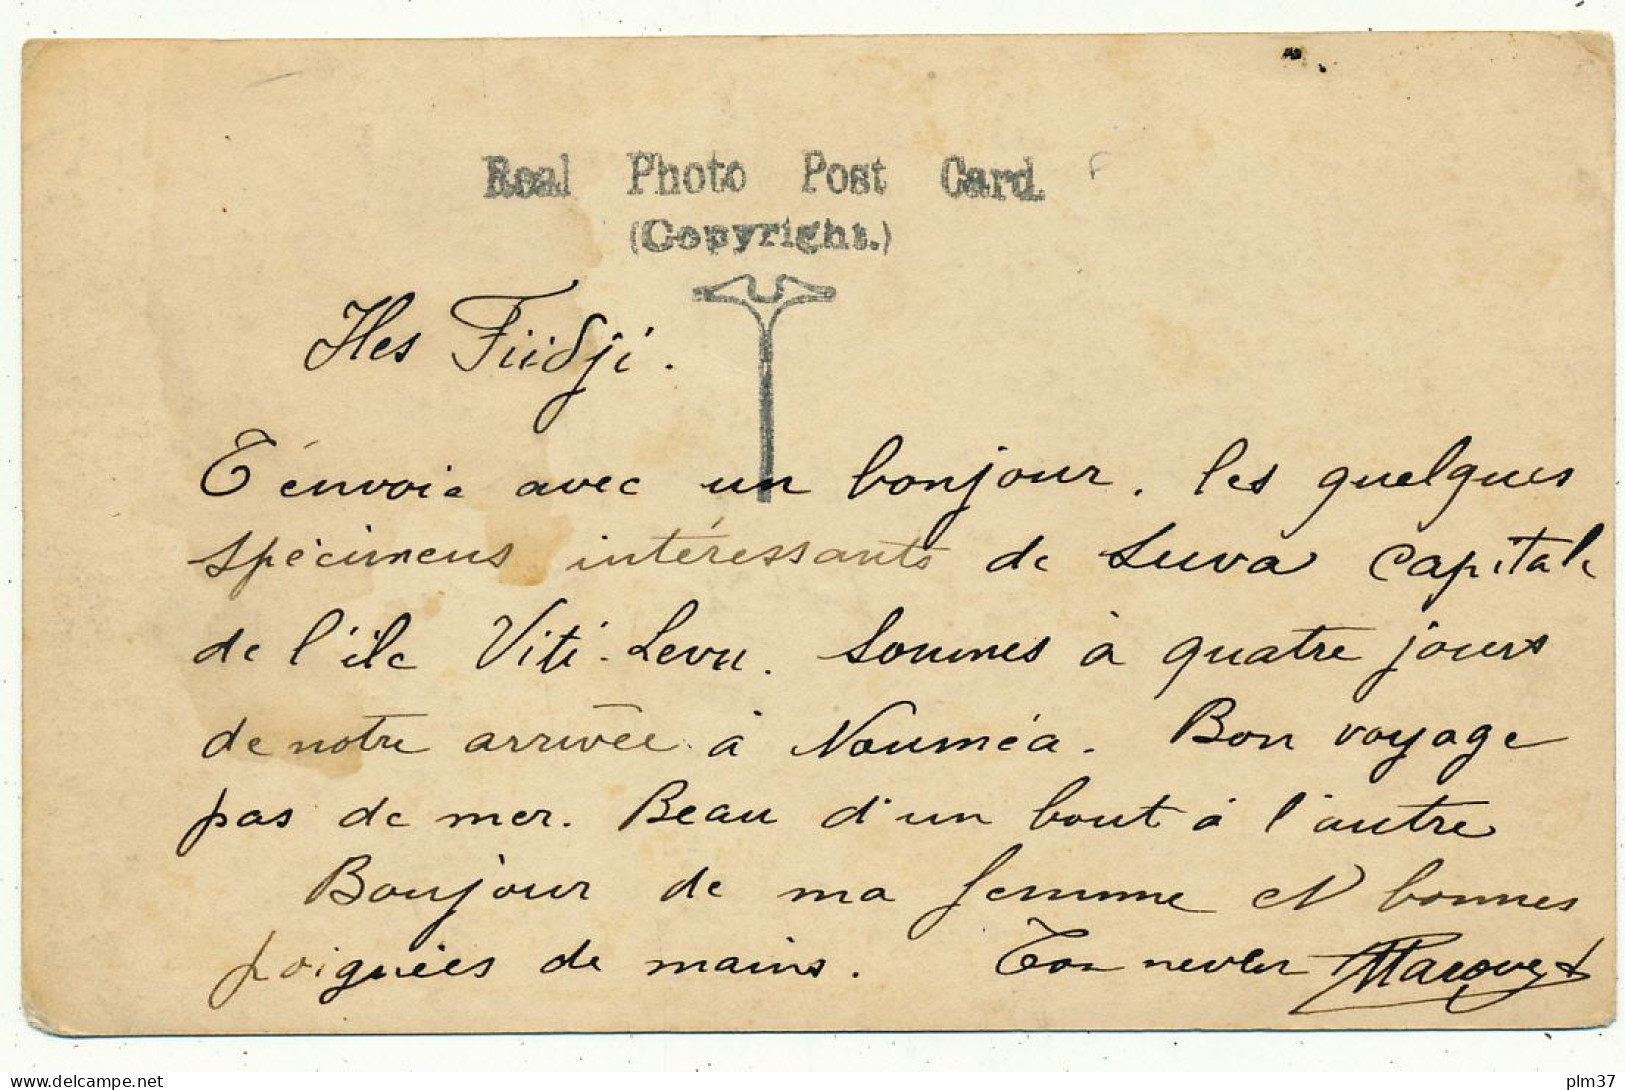 Real Photo Post Card.
(Copyright.)
Iles Fiidji.
T'envoie avec un bonjour. les quelques
spécimens intéressants de Suva capitale
de l'île Viti-Levu. Sommes à quatre jours
de notre arrivée à Nouméa. Bon voyage
pas de mer. Beau d'un bout à l'autre
Bonjour de ma femme et bonnes
poignées de mains. Ton neveu
www.delcampe.net
plm37